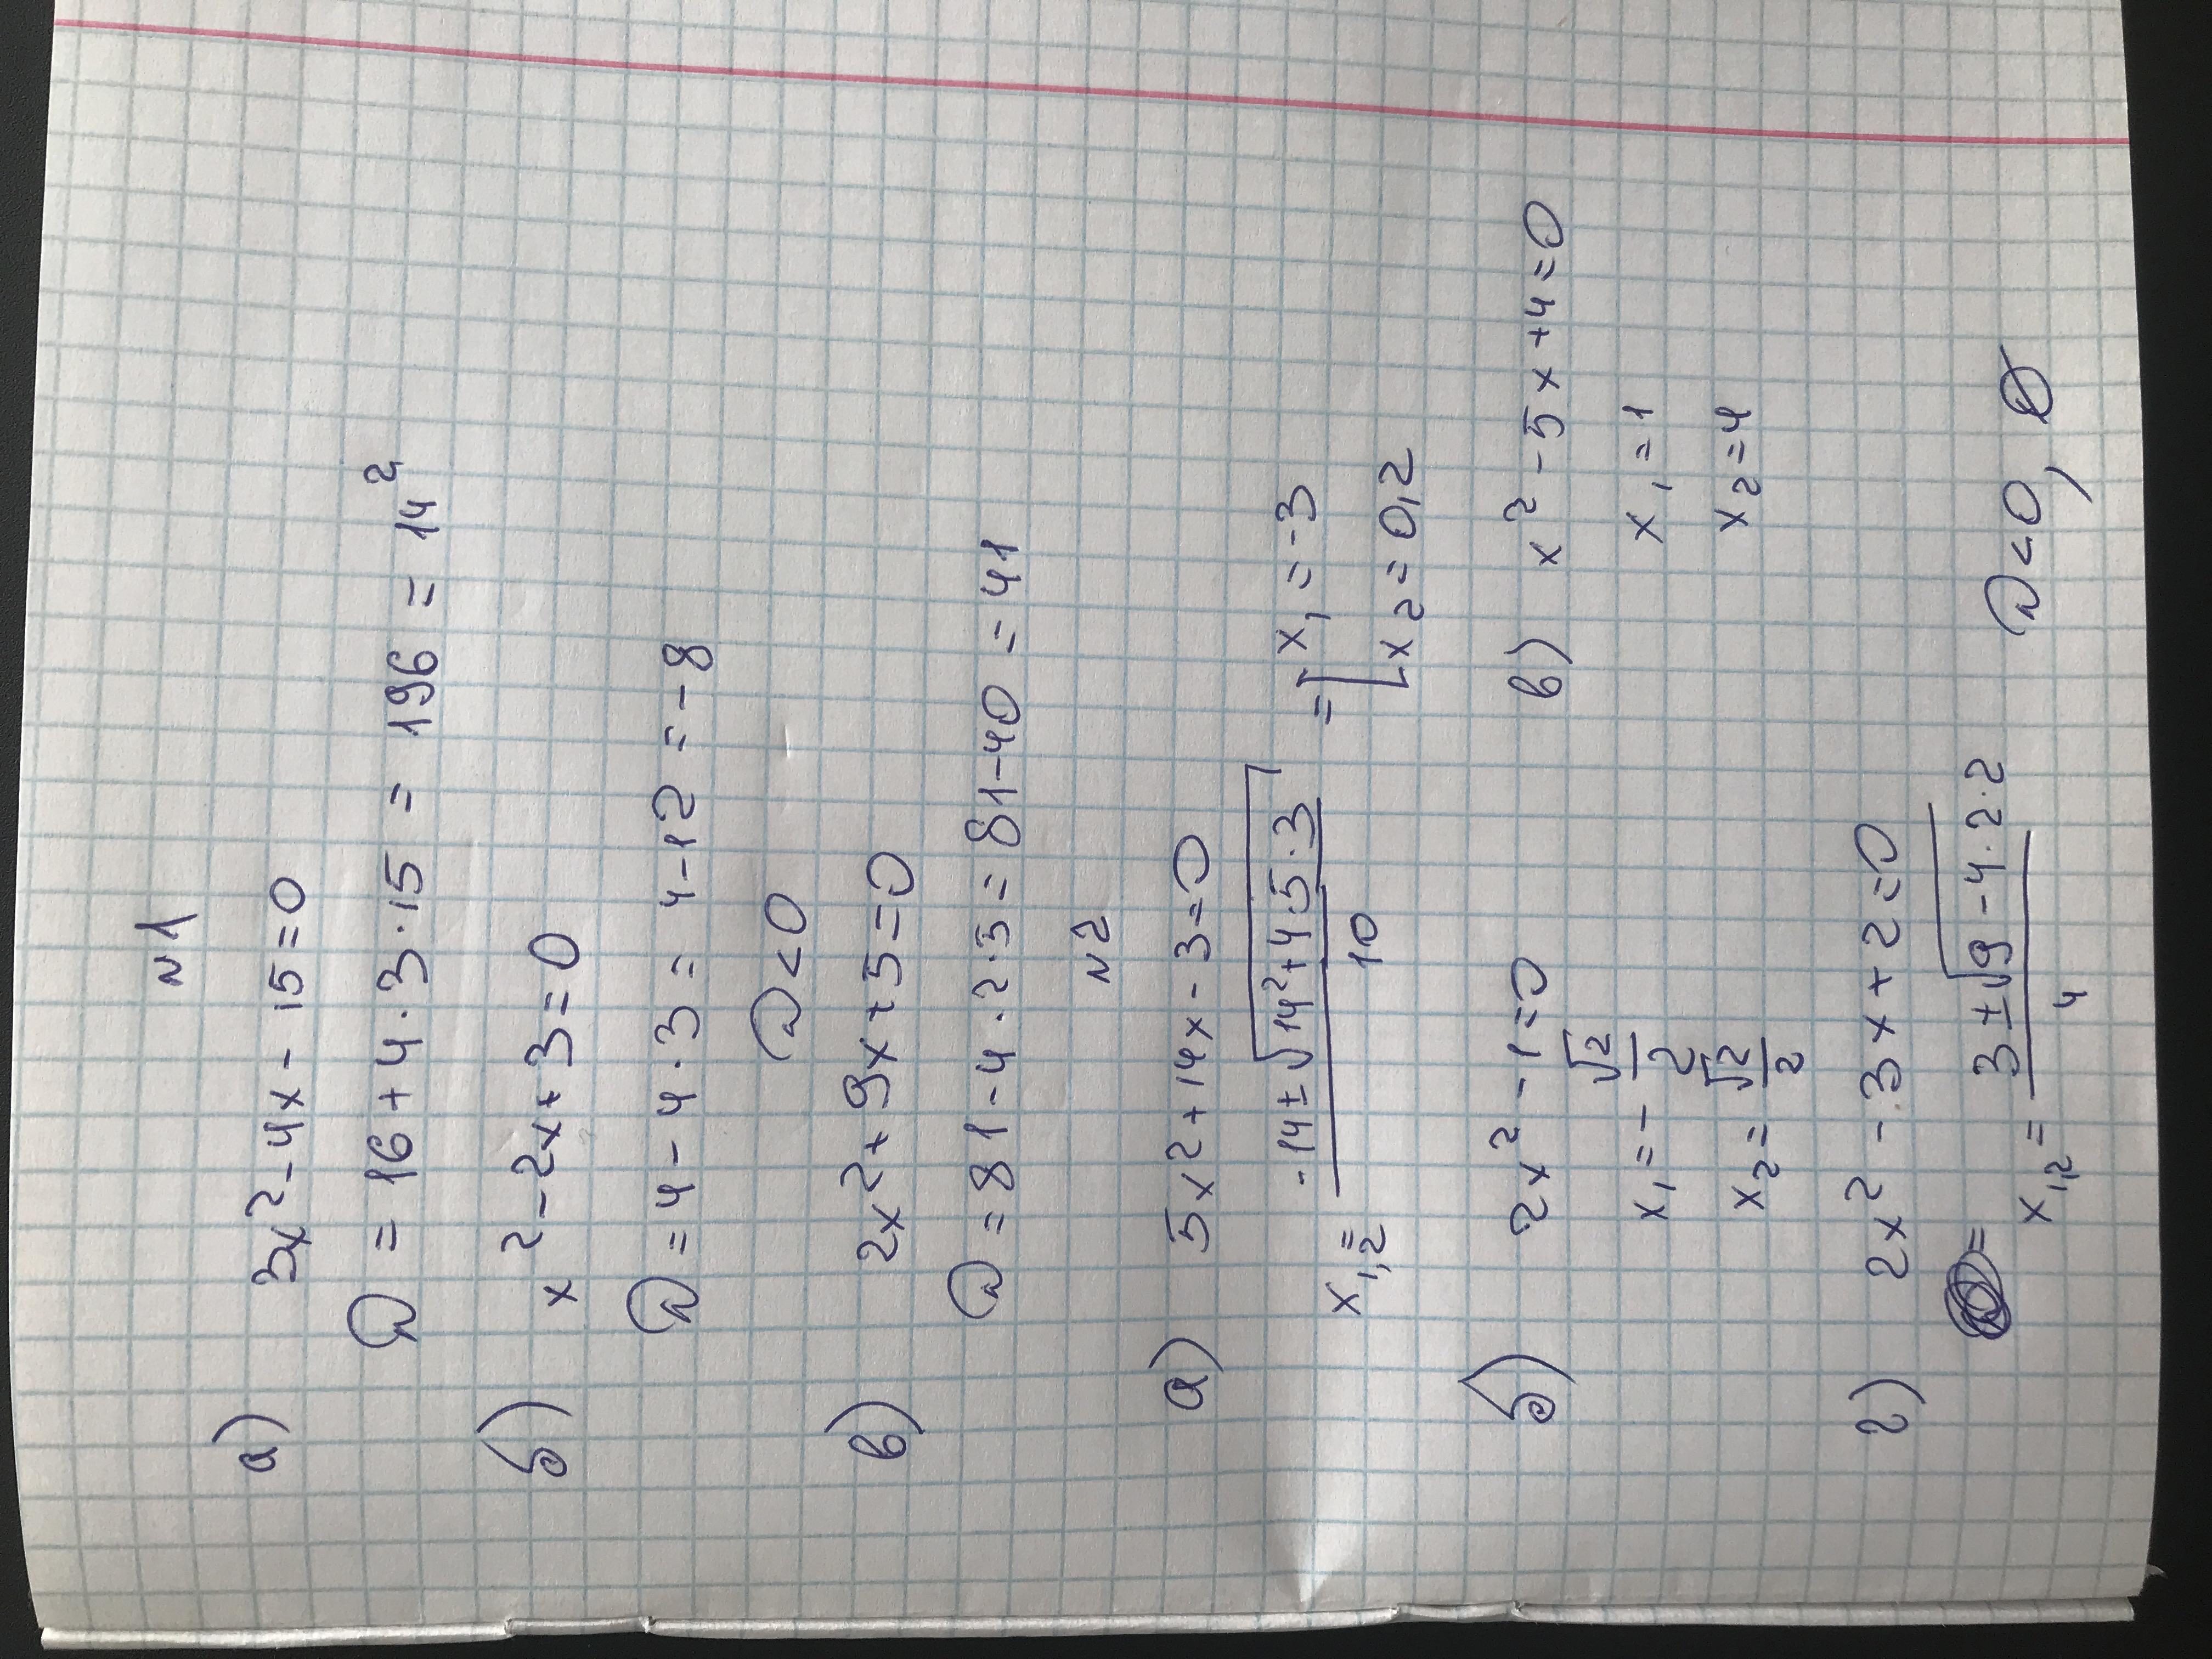 N1
а) 3x² - 4x - 15 = 0
D = 16 + 4 · 3 · 15 = 196 = 14²
б) x² - 2x + 3 = 0
D = 4 - 4 · 3 = 4 - 12 = -8
D < 0
в) 2x² + 9x + 5 = 0
D = 81 - 4 · 2 · 5 = 81 - 40 = 41
N2
а) 5x² + 14x - 3 = 0
x₁,₂ = (-14 ± √(14² + 4 · 5 · 3))/10 = [x₁ = -3
[x₂ = 0,2
б) 2x² - 1 = 0
x₁ = -√2/2
x₂ = √2/2
в) x² - 5x + 4 = 0
x₁ = 1
x₂ = 4
г) 2x² - 3x + 2 = 0
=
x₁,₂ = (3 ± √(9 - 4 · 2 · 2))/4 D < 0, ∅